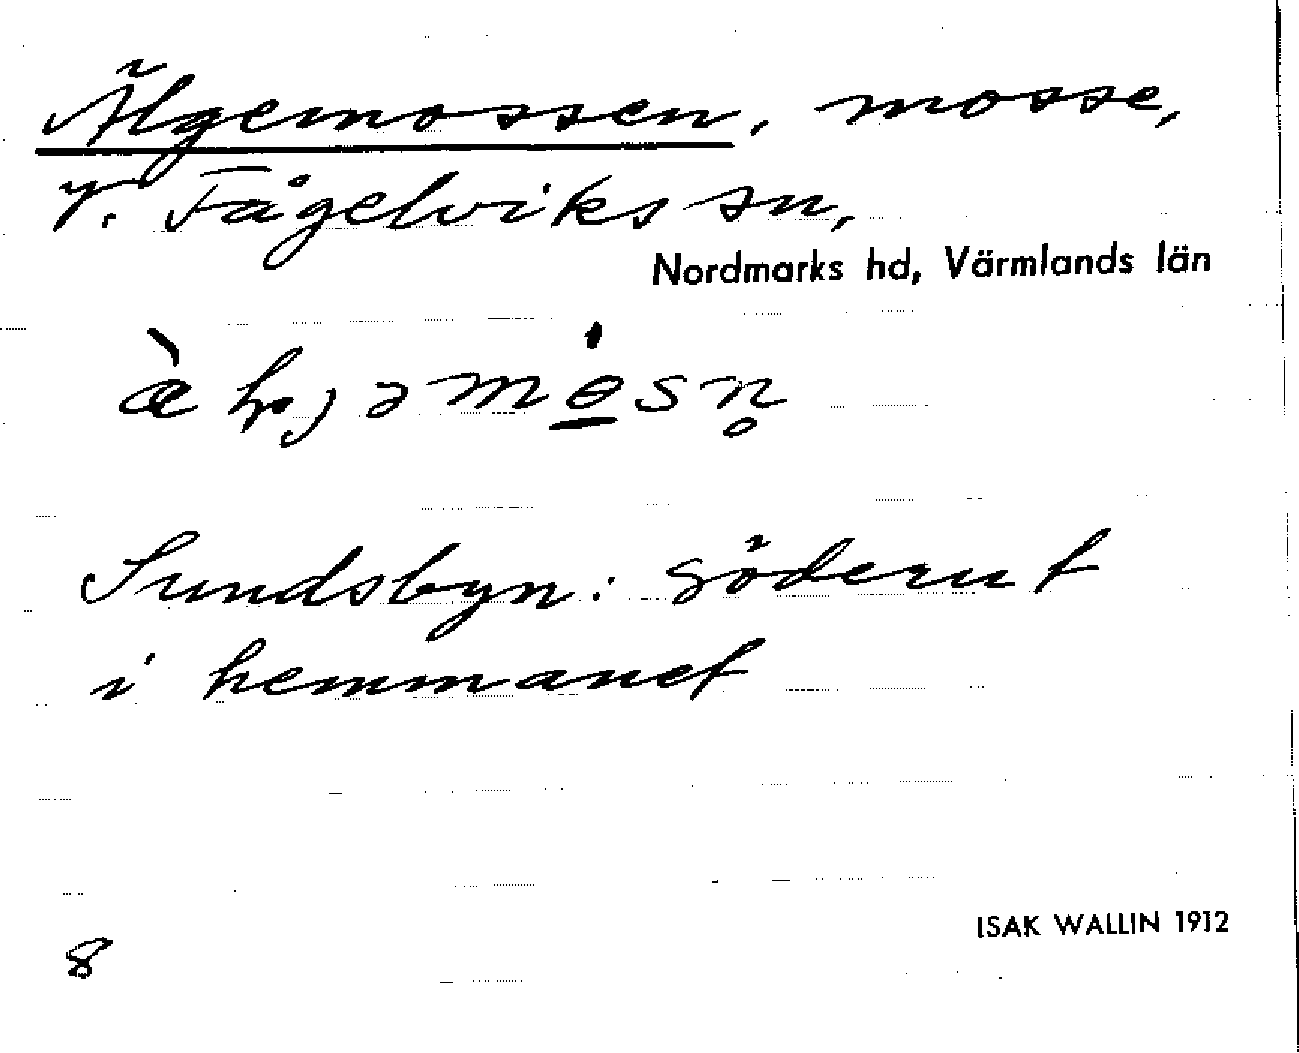 Älgemossen, mosse,
V. Fågelviks sn,
Nordmarks hd, Värmlands län
Sundsbyn: söderut
i hemmanet
ISAK WALLIN 1912
8